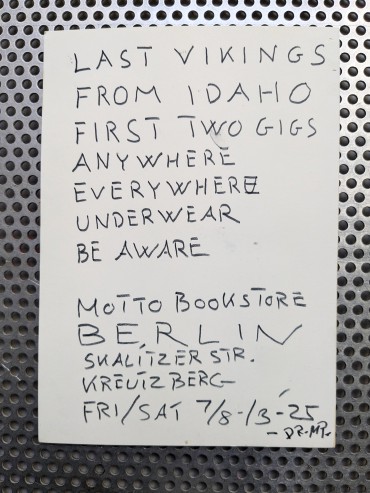 LAST VIKINGS
FROM IDAHO
FIRST TWO GIGS
ANYWHERE
EVERYWHERE
UNDERWEAR
BE AWARE
MOTTO BOOKSTORE
BERLIN
SKALITZER STR.
KREUTZBERG
FRI/SAT 7/8-/3-25